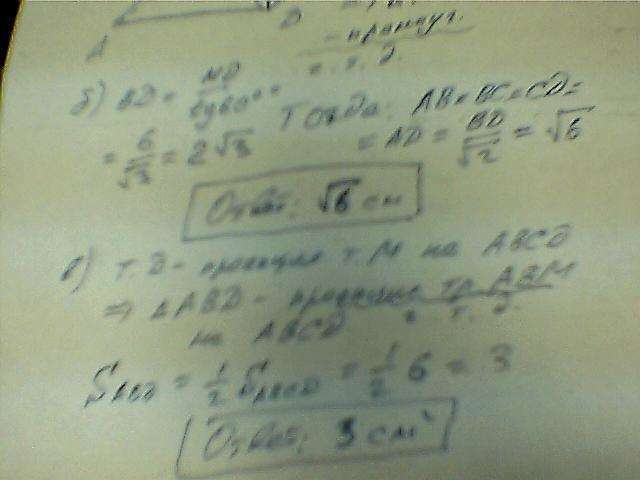 A D
- прямоуг.
ч. т. д.
б) BD = MD / tg60° =
= 6/√3 = 2√3
Тогда: AB = BC = CD =
= AD = BD/√2 = √6
Ответ: √6 см
в) т. D - проекция т. M на ABCD
⇒ ΔABD - проекция тр. ABM
на ABCD ч. т. д.
S_ABD = 1/2 S_ABCD = 1/2 6 = 3
Ответ: 3 см²